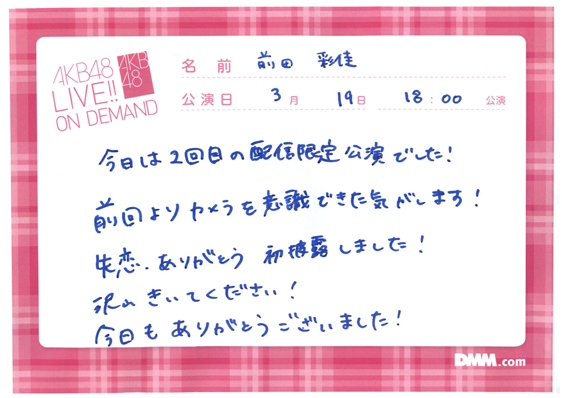 AKB48
LIVE!!
ON DEMAND
AKB
48
名前 前田 彩佳
公演日 3月 19日 18:00 公演
今日は2回目の配信限定公演でした!
前回よりカメラを意識できた気がします!
失恋、ありがとう 初披露しました!
沢山きいてください!
今日もありがとうございました!
DMM.com